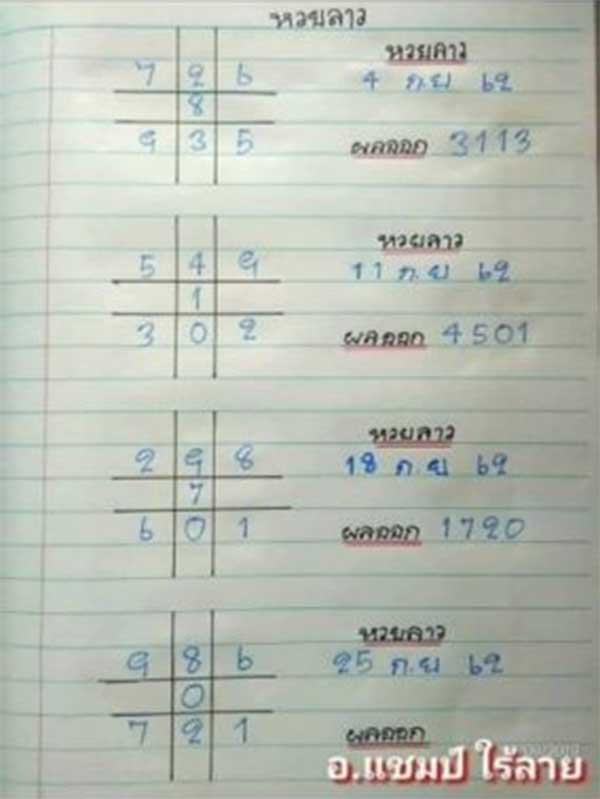 หวยลาว
หวยลาว
7 2 6
4 ก.ย 62
8
9 3 5
ผลออก 3113
หวยลาว
5 4 9
11 ก.ย 62
1
3 0 2
ผลออก 4501
หวยลาว
2 9 8
18 ก.ย 62
7
6 0 1
ผลออก 1720
หวยลาว
9 8 6
25 ก.ย 62
0
7 2 1
ผลออก
อ.แชมป์ ไร้ลาย